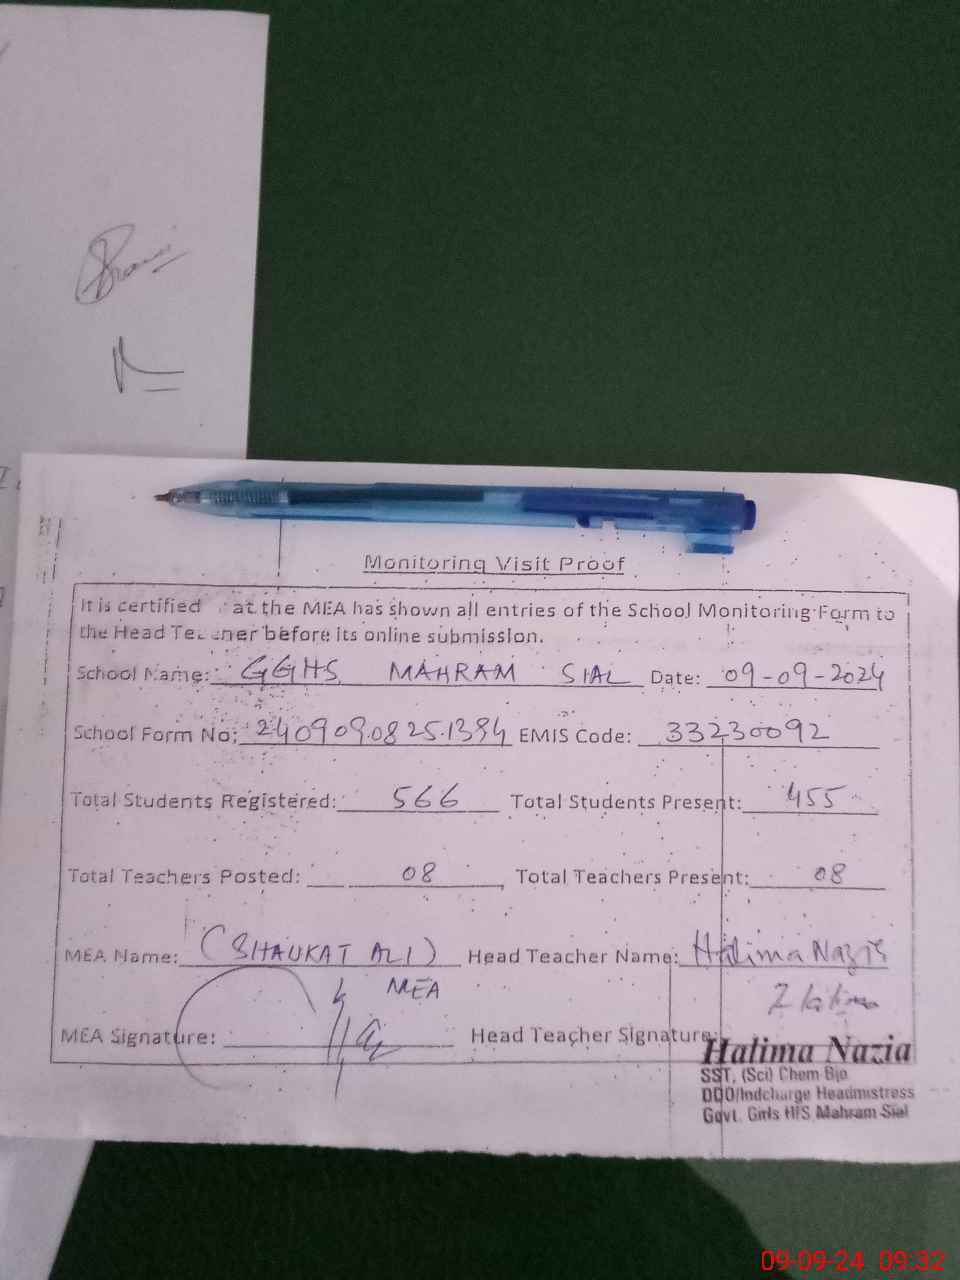 Monitoring Visit Proof
It is certified at the MEA has shown all entries of the School Monitoring Form to
the Head Teacher before its online submission.
School Name: GGHS MAHRAM SIAL Date: 09-09-2024
School Form No: 24090908251394 EMIS Code: 33230092
Total Students Registered: 566 Total Students Present: 455
Total Teachers Posted: 08 Total Teachers Present: 08
MEA Name: (SHAUKAT ALI) Head Teacher Name: Halima Nazia
MEA
MEA Signature: Head Teacher Signature:
Halima Nazia
SST, (Sci) Chem Bio
DDO/Indcharge Headmistress
Govt. Girls H/S Mahram Sial
09-09-24 09:32